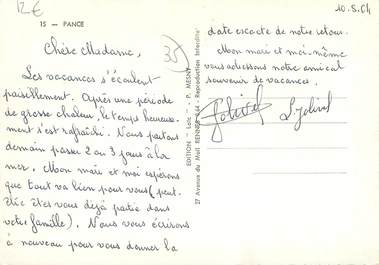 12€
15 — PANCE
Chère Madame,
35
Les vacances s'écoulent
paisiblement. Après une période
de grosse chaleur, le temps heureuse-
ment s'est rafraîchi. Nous partons
demain passer 2 ou 3 jours à la
mer. Mon mari et moi espérons
que tout va bien pour vous (peut-
être êtes vous déjà partie dans
votre famille). Nous vous écrirons
à nouveau pour vous donner la
EDITION "Loïc" - P. MESNY
27 Avenue du Mail RENNES
Reproduction Interdite
10.5.64
date exacte de notre retour.
Mon mari et moi-même
vous adressons notre amical
souvenir de vacances.